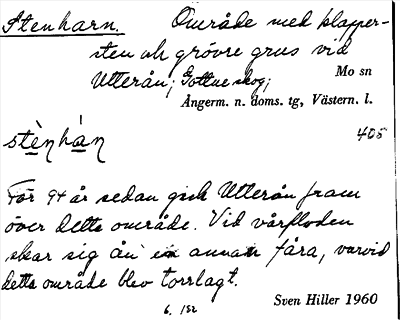 Stenharn. Område med klapper-
sten och grövre grus vid
Utterån; Gottne skog; Mo sn
Ångerm. n. doms. tg, Västern. l.
stènhán 405
För 94 år sedan gick Utterån fram
över detta område. Vid vårfloden
skar sig ån in annan fåra, varvid
detta område blev torrlagt.
6. 182 Sven Hiller 1960